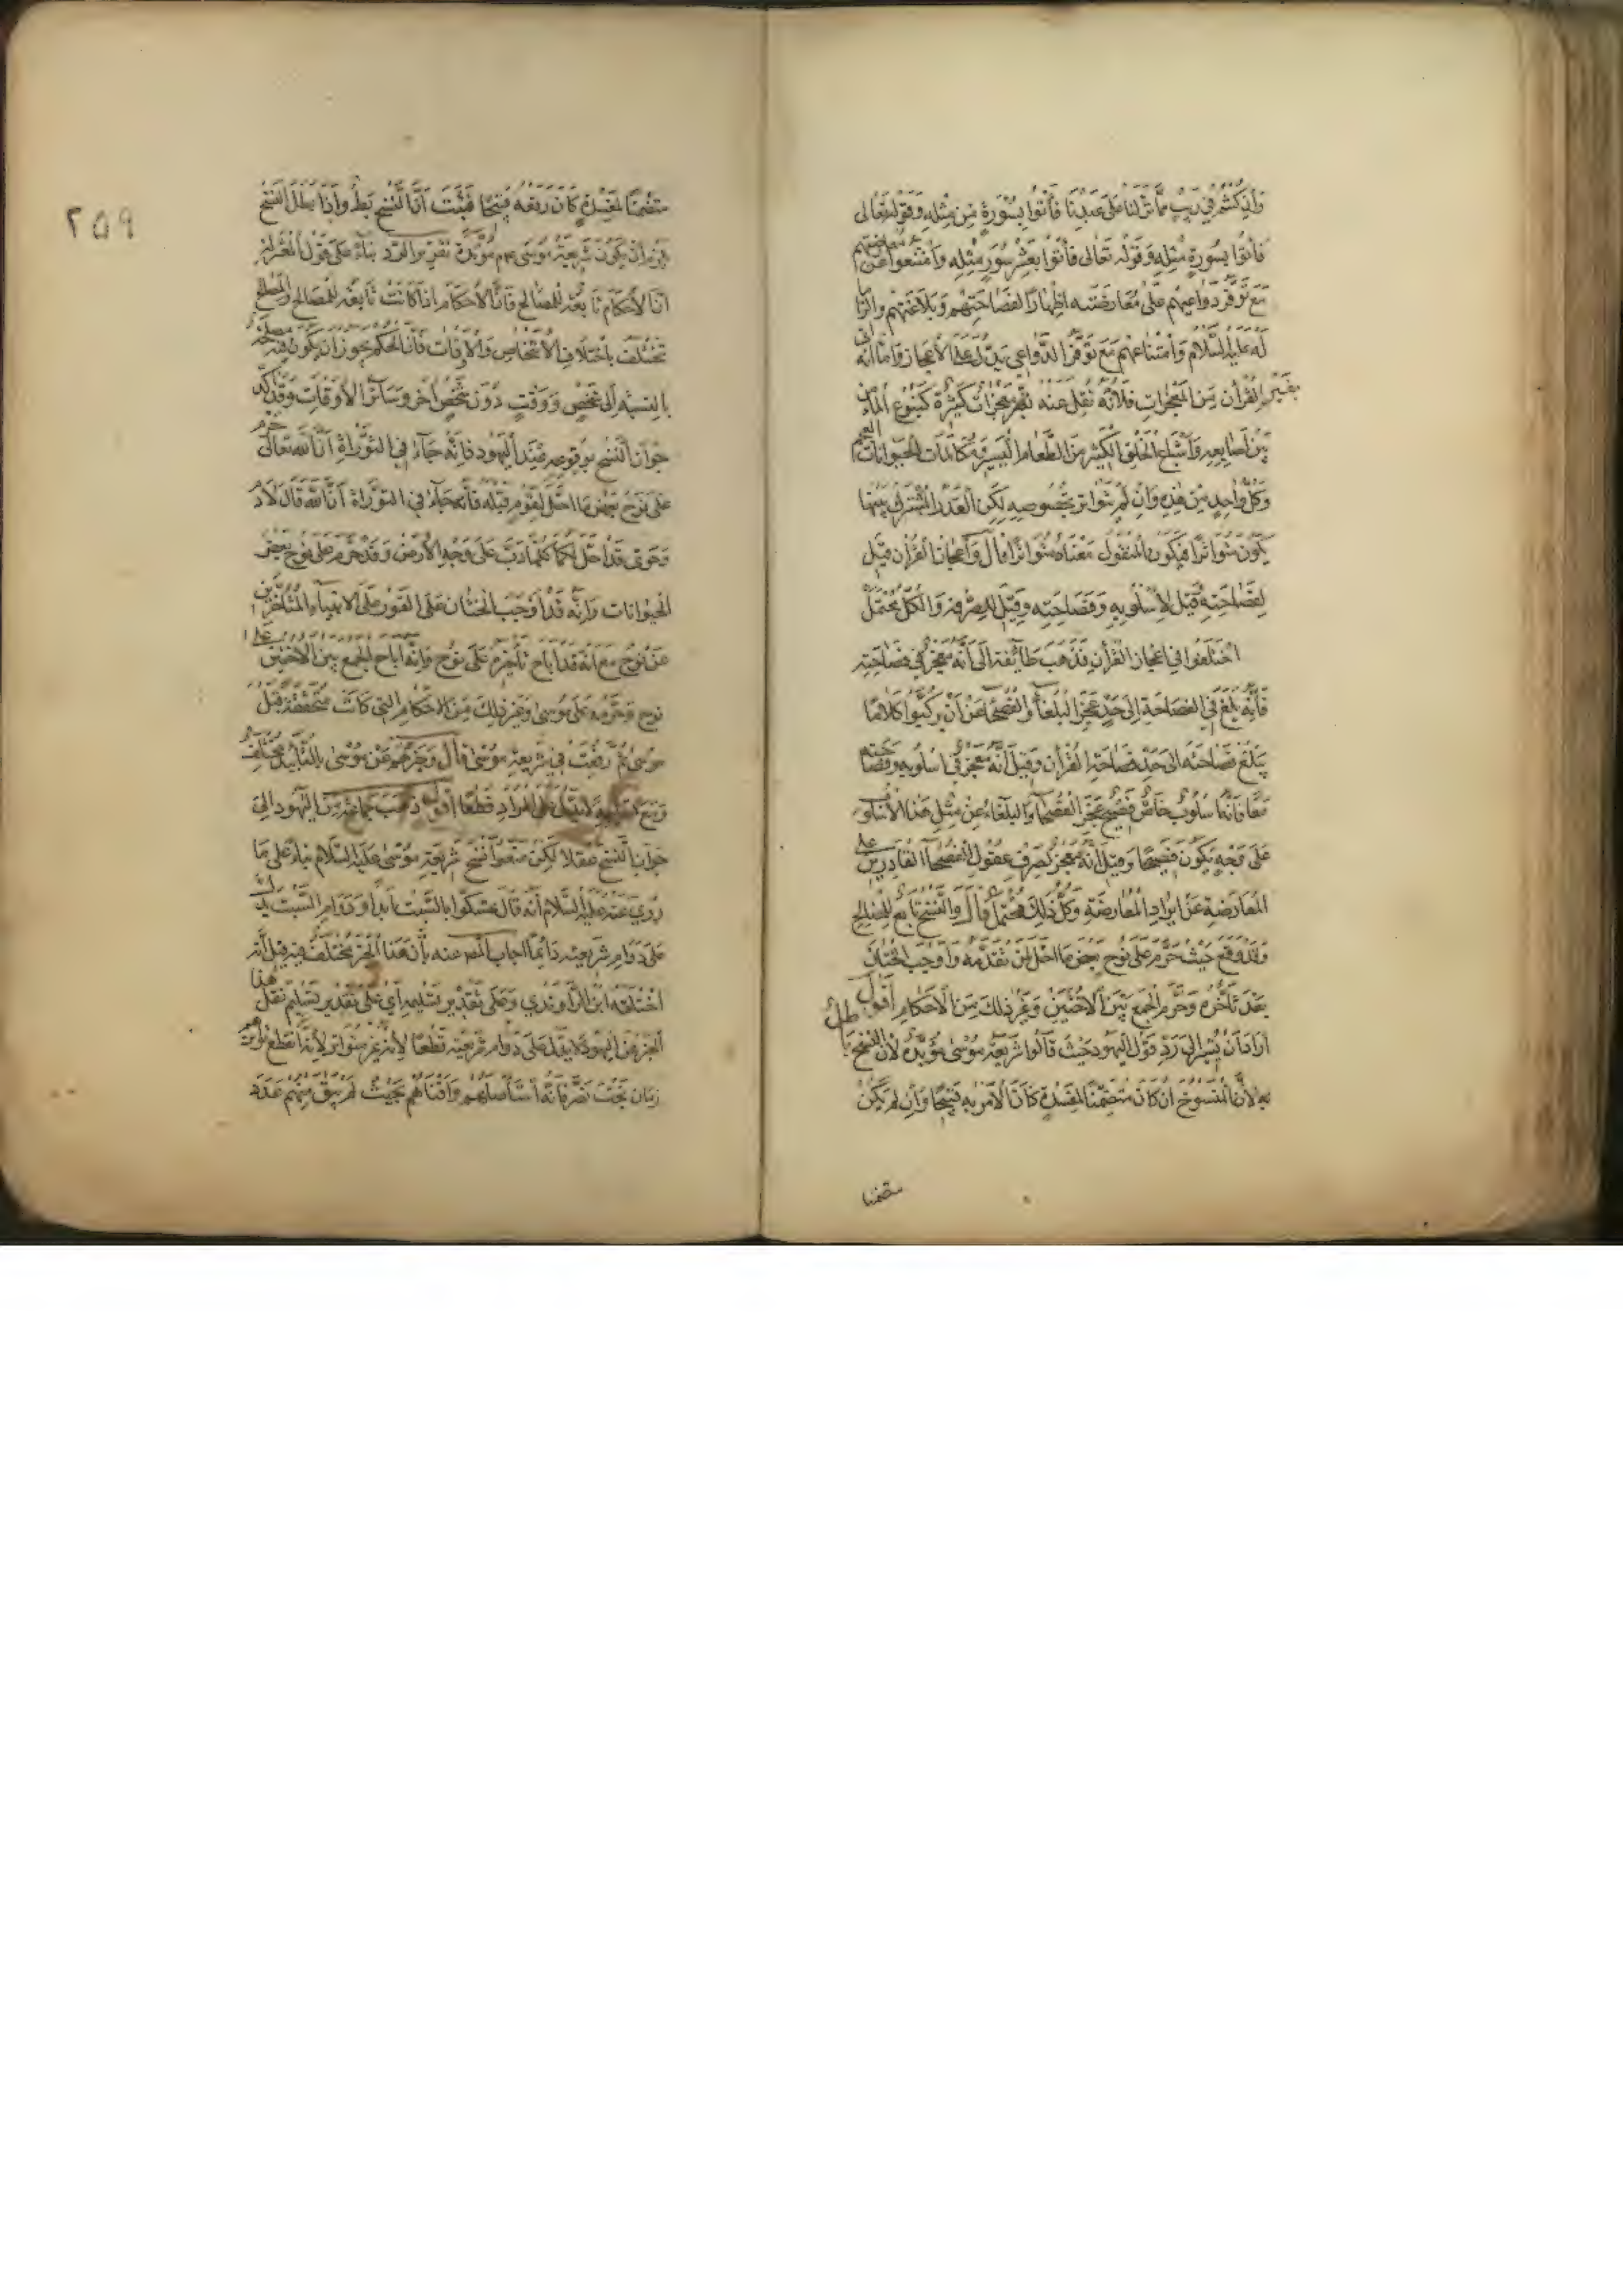 وان كنتم في ريب مما نزلنا على عبدنا فأتوا بسورة من مثله وقوله تعالى
فأتوا بسورة مثله وقوله تعالى فأتوا بعشر سور مثله وامتنعوا عن معارضتهم
مع توفر دواعيهم على معارضته اظهارا لفصاحتهم وبلاغتهم والزاما
له عليه السلام وامتناعهم مع توفر الدواعي يدل على الاعجاز واما انه اتى
بغير القرآن من المعجزات فلانه نقل عنه معجزات كثيرة كينبوع الماء من
بين اصابعه واشباع الخلق الكثير من الطعام اليسير ومكالمات الحيوانات العجم
وكل واحد من هذه وان لم يتواتر بخصوصه لكن العدد المشترك بينها
يكون متواترا فيكون المنقول معناه متواترا قال واعجاز القرآن قيل
لفصاحته وقيل لاسلوبه وفصاحته وقيل للصرفة والكل محتمل
اختلفوا في اعجاز القرآن فذهب طائفة الى انه معجز في فصاحته
فانه بلغ في الفصاحة الى حد عجز البلغاء والفصحاء عن ان يركبوا كلاما
يبلغ فصاحته الى حد فصاحة القرآن وقيل انه معجز في اسلوبه وفصاحته
معا فانه اسلوب خاص فصيح عجز الفصحاء والبلغاء عن مثل هذا الاسلوب
على وجه يكون فصيحا وقيل انه معجز لصرف عقول الفصحاء القادرين على
المعارضة عن ايراد المعارضة وكل ذلك محتمل قال والنسخ تابع للمصالح
وقد وقع حيث حرم على نوح بعض ما احل لمن تقدمه واوجب الختان
بعد تأخره وحرم الجمع بين الاختين وغير ذلك من الاحكام اقول
اراد ان يشير الى رد قول اليهود حيث قالوا شريعة موسى مؤبدة لان النسخ باطل
لان المنسوخ ان كان متضمنا لمفسدة كان الامر به قبيحا وان لم يكن
متضمنا
٢٥٩
متضمنا لمفسدة كان رفعه قبيحا فثبت ان النسخ بط واذا بطل النسخ
يلزم ان يكون شريعة موسى عم مؤبدة تقرير الرد بناء على قول المعتزلة
ان الاحكام تابعة للمصالح فان الاحكام اذا كانت تابعة للمصالح والمصالح
تختلف باختلاف الاشخاص والاوقات فان الحكم يجوز ان يكون فيه مصلحة
بالنسبة الى شخص ووقت دون شخص آخر وسائر الاوقات وقد اكد
جواز النسخ بوقوعه عند اليهود فانه جاء في التوراة ان الله تعالى حرم
على نوح بعض ما احل لقوم قبله فانه جاء في التوراة ان الله قال لادم
وحوى قد احل لكما كلما دب على وجه الارض وقد حرم على نوح بعض
الحيوانات وانه قد اوجب الختان على الفور على الانبياء المتأخرين
عن نوح مع انه قد اباح تأخيره على نوح وانه اباح الجمع بين الاختين على
نوح وحرمه على موسى وغير ذلك من الاحكام التي كانت متحققة قبل
موسى ثم رفعت في شريعة موسى قال وخبرهم عن موسى بالتأبيد مختلق
ومع تسليمه لا يدل على المراد قطعا اقول ذهب جماعة من اليهود الى
جواز النسخ عقلا لكن منعوا نسخ شريعة موسى عليه السلام بناء على ما
روي عنه عليه السلام انه قال تمسكوا بالسبت ابدا ودوام السبت يدل
على دوام شريعته دائما اجاب المص عنه بان هذا الخبر مختلف فيه قيل انه
اختلقه ابن الراوندي وعلى تقدير تسليمه اي على تقدير تسليم نقل هذا
الخبر من اليهود لا يدل على دوام شريعته قطعا لانه غير متواتر لانه انقطع تواتره
زمان بخت نصر فانه استأصلهم وافناهم بحيث لم يبق منهم عدد